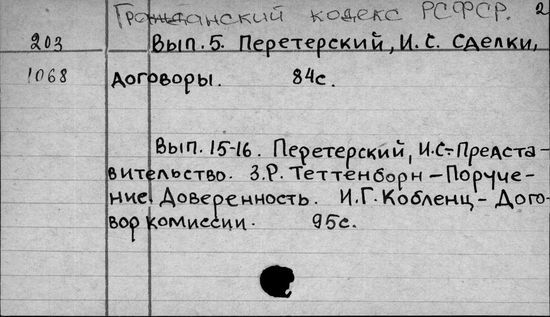 Гражданский кодекс РСФСР. 2
203 Вып. 5. Перетерский, И.С. Сделки,
1068 договоры. 84с.
Вып. 15-16. Перетерский, И.С.-Предста-
вительство. З.Р. Теттенборн - Поруче-
ние. Доверенность. И.Г. Кобленц - Дого-
вор комиссии. 95с.